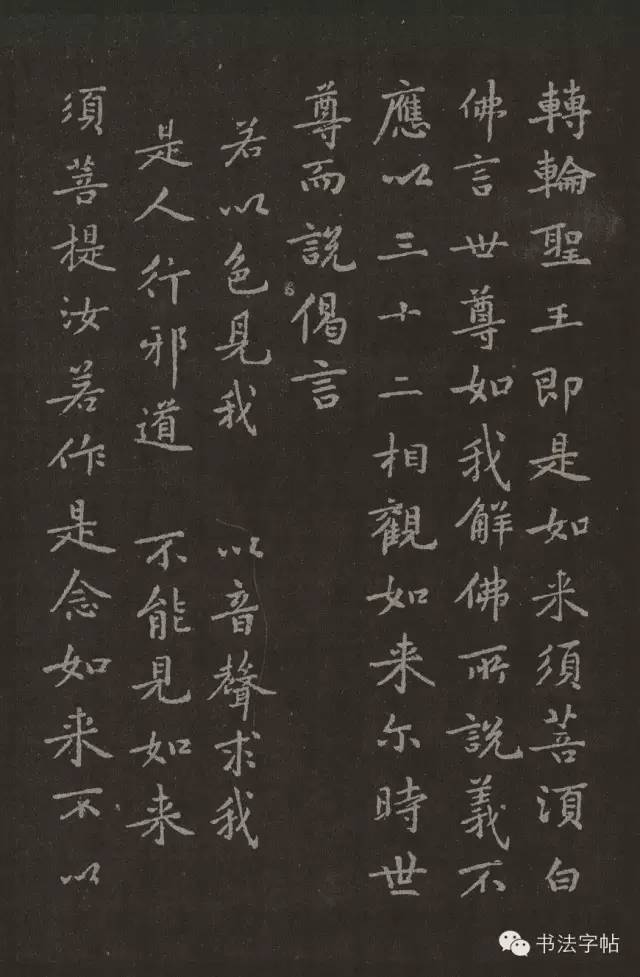 轉輪聖王即是如来須菩湏白
佛言世尊如我解佛所說義不
應以三十二相觀如来尓時世
尊而說偈言
若以色見我 以音聲求我
是人行邪道 不能見如来
須菩提汝若作是念如来不以
书法字帖